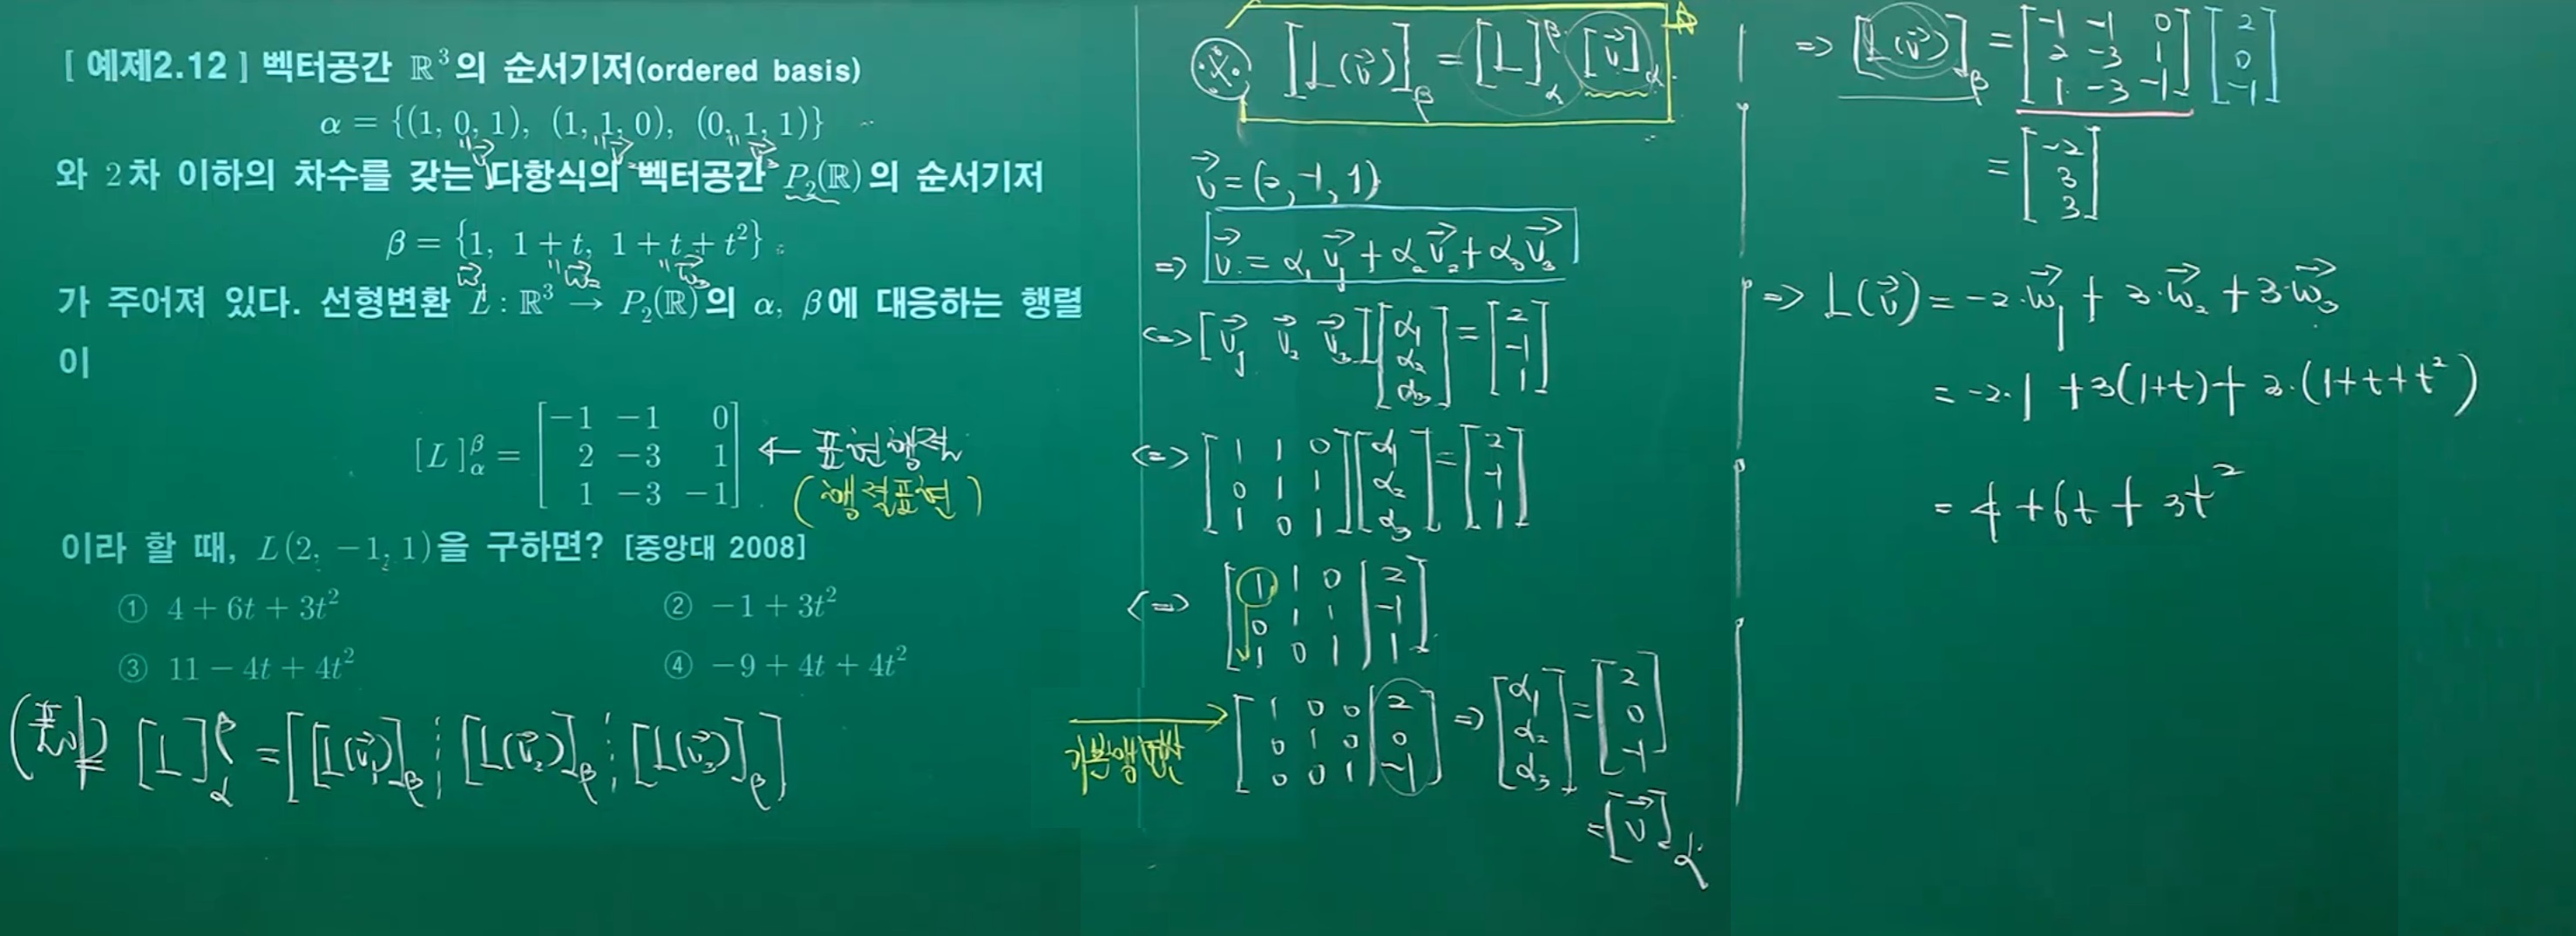 [ 예제2.12 ] 벡터공간 ℝ³의 순서기저(ordered basis)
α = {(1, 0, 1), (1, 1, 0), (0, 1, 1)}
" v⃗₁ " v⃗₂ " v⃗₃
와 2차 이하의 차수를 갖는 다항식의 벡터공간 P₂(ℝ)의 순서기저
β = {1, 1 + t, 1 + t + t²}
w⃗₁ " w⃗₂ " w⃗₃
가 주어져 있다. 선형변환 L : ℝ³ → P₂(ℝ)의 α, β에 대응하는 행렬
이
[L]_α^β = [−1 −1 0
2 −3 1
1 −3 −1] ← 표현행렬
(행렬표현)
이라 할 때, L(2, −1, 1)을 구하면? [중앙대 2008]
① 4 + 6t + 3t² ② −1 + 3t²
③ 11 − 4t + 4t² ④ −9 + 4t + 4t²
[L]_α^β = [[L(v⃗₁)]_β ⋮ [L(v⃗₂)]_β ⋮ [L(v⃗₃)]_β]
[L(v⃗)]_β = [L]_α^β [v⃗]_α
v⃗ = (2, -1, 1)
⇒ v⃗ = α₁v⃗₁ + α₂v⃗₂ + α₃v⃗₃
⇔ [v⃗₁ v⃗₂ v⃗₃] [α₁ = [2
α₂ -1
α₃] 1]
⇔ [1 1 0 [α₁ = [2
0 1 1 α₂ -1
1 0 1] α₃] 1]
⇔ [1 1 0 | 2
0 1 1 | -1
1 0 1 | 1]
기본행연산 → [1 0 0 | 2 ⇒ [α₁ = [2
0 1 0 | 0 α₂ 0
0 0 1 | -1] α₃] -1]
= [v⃗]_α
⇒ [L(v⃗)]_β = [-1 -1 0 [2
2 -3 1 0
1 -3 -1] -1]
= [-2
3
3]
⇒ L(v⃗) = -2·w⃗₁ + 3·w⃗₂ + 3·w⃗₃
= -2·1 + 3(1+t) + 3·(1+t+t²)
= 4 + 6t + 3t²